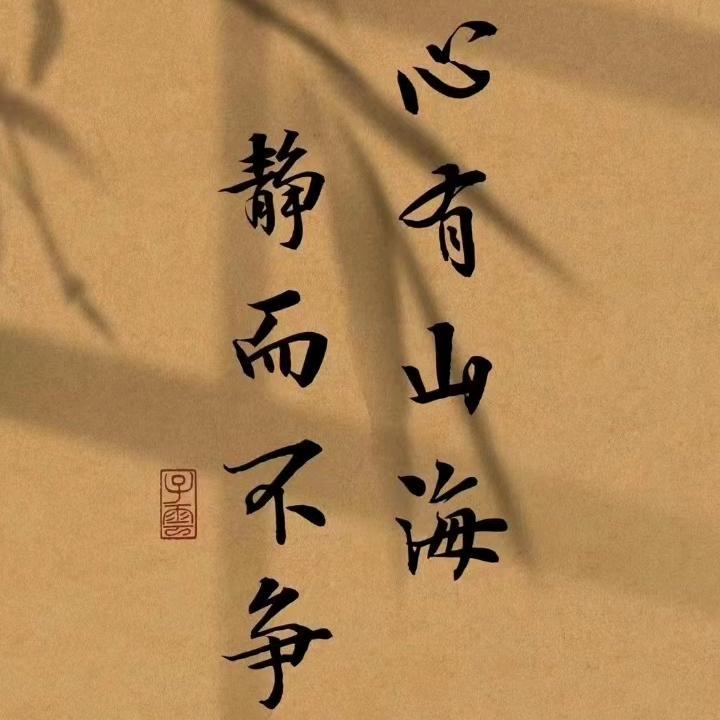 心有山海
静而不争
子雲